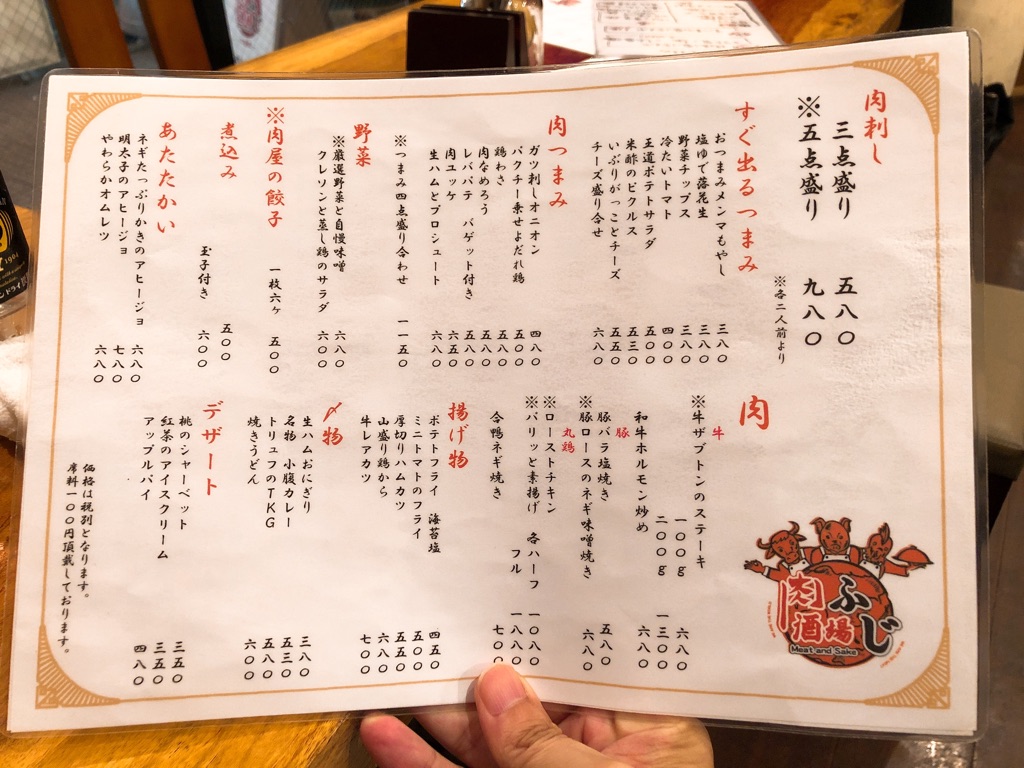 肉刺し
三点盛り 五八〇
※五点盛り 九八〇
※各二人前より
すぐ出るつまみ
おつまみメンマもやし 三八〇
塩ゆで落花生 三八〇
野菜チップス 三八〇
冷たいトマト 四〇〇
王道ポテトサラダ 五〇〇
米酢のピクルス 五三〇
いぶりがっことチーズ 五五〇
チーズ盛り合せ 六八〇
肉つまみ
ガツ刺しオニオン 四八〇
パクチー乗せよだれ鶏 五〇〇
鶏わさ 五八〇
肉なめろう 五八〇
レバパテ バゲット付き 五八〇
肉ユッケ 六五〇
生ハムとプロシュート 六八〇
※つまみ四点盛り合わせ 一一五〇
野菜
※厳選野菜と自慢味噌 六八〇
クレソンと蒸し鶏のサラダ 六〇〇
※肉屋の餃子 一枚六ヶ 五〇〇
煮込み 五〇〇
玉子付き 六〇〇
あたたかい
ネギたっぷりかきのアヒージョ 六八〇
明太子のアヒージョ 七八〇
やわらかオムレツ 六八〇
肉
牛
※牛ザブトンのステーキ 一〇〇g 六八〇
二〇〇g 一三〇〇
和牛ホルモン炒め 六八〇
豚
豚バラ塩焼き 五八〇
※豚ロースのネギ味噌焼き 六八〇
丸鶏
※ローストチキン 各ハーフ 一〇八〇
※パリッと素揚げ フル 一八八〇
合鴨ネギ焼き 七〇〇
揚げ物
ポテトフライ 海苔塩 四五〇
ミニトマトのフライ 五〇〇
厚切りハムカツ 五五〇
山盛り鶏から 六八〇
牛レアカツ 七〇〇
〆物
生ハムおにぎり 三八〇
名物 小腹カレー 五三〇
トリュフのTKG 五八〇
焼きうどん 六〇〇
デザート
桃のシャーベット 三五〇
紅茶のアイスクリーム 三五〇
アップルパイ 四八〇
価格は税別となります。
席料一〇〇円頂戴しております。
肉酒場
ふじ
Meat and Sake